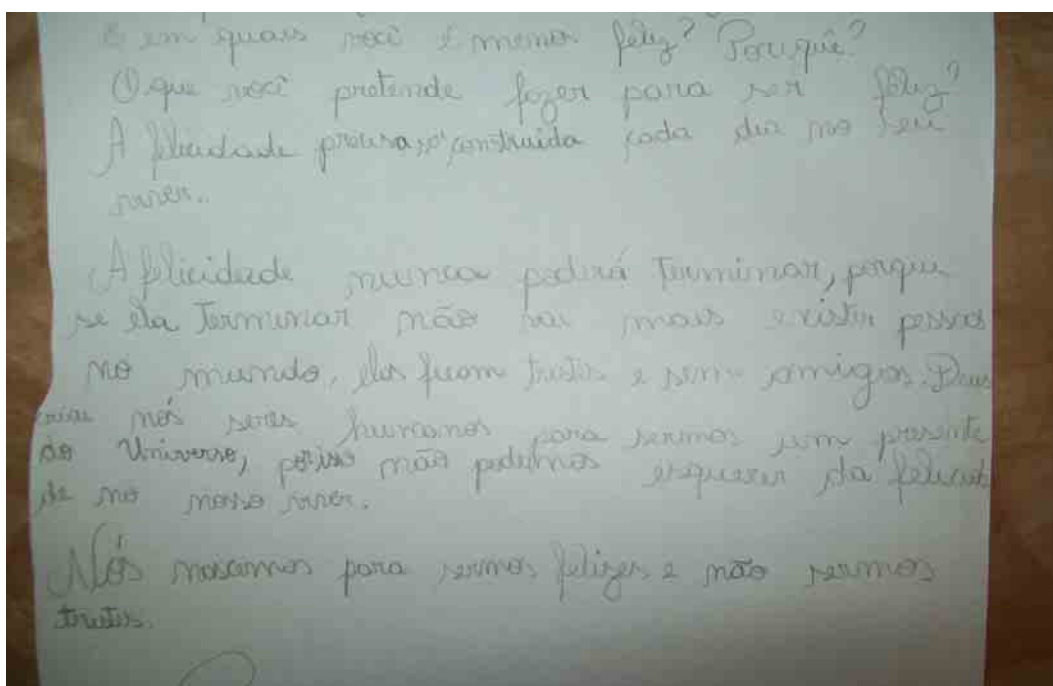 E em quais você é menos feliz? Porquê?
O que você pretende fazer para ser feliz?
A felicidade precisa ser construida cada dia no seu
viver..
A felicidade nunca poderá terminar, porque
se ela terminar não vai mais existir pessoas
no mundo, elas ficam tristes e sem amigos. Deus
criou nós seres humanos para sermos um presente
do Universo, porisso não podemos esquecer da felicida
de no nosso viver.
Nós nascemos para sermos felizes e não sermos
tristes.